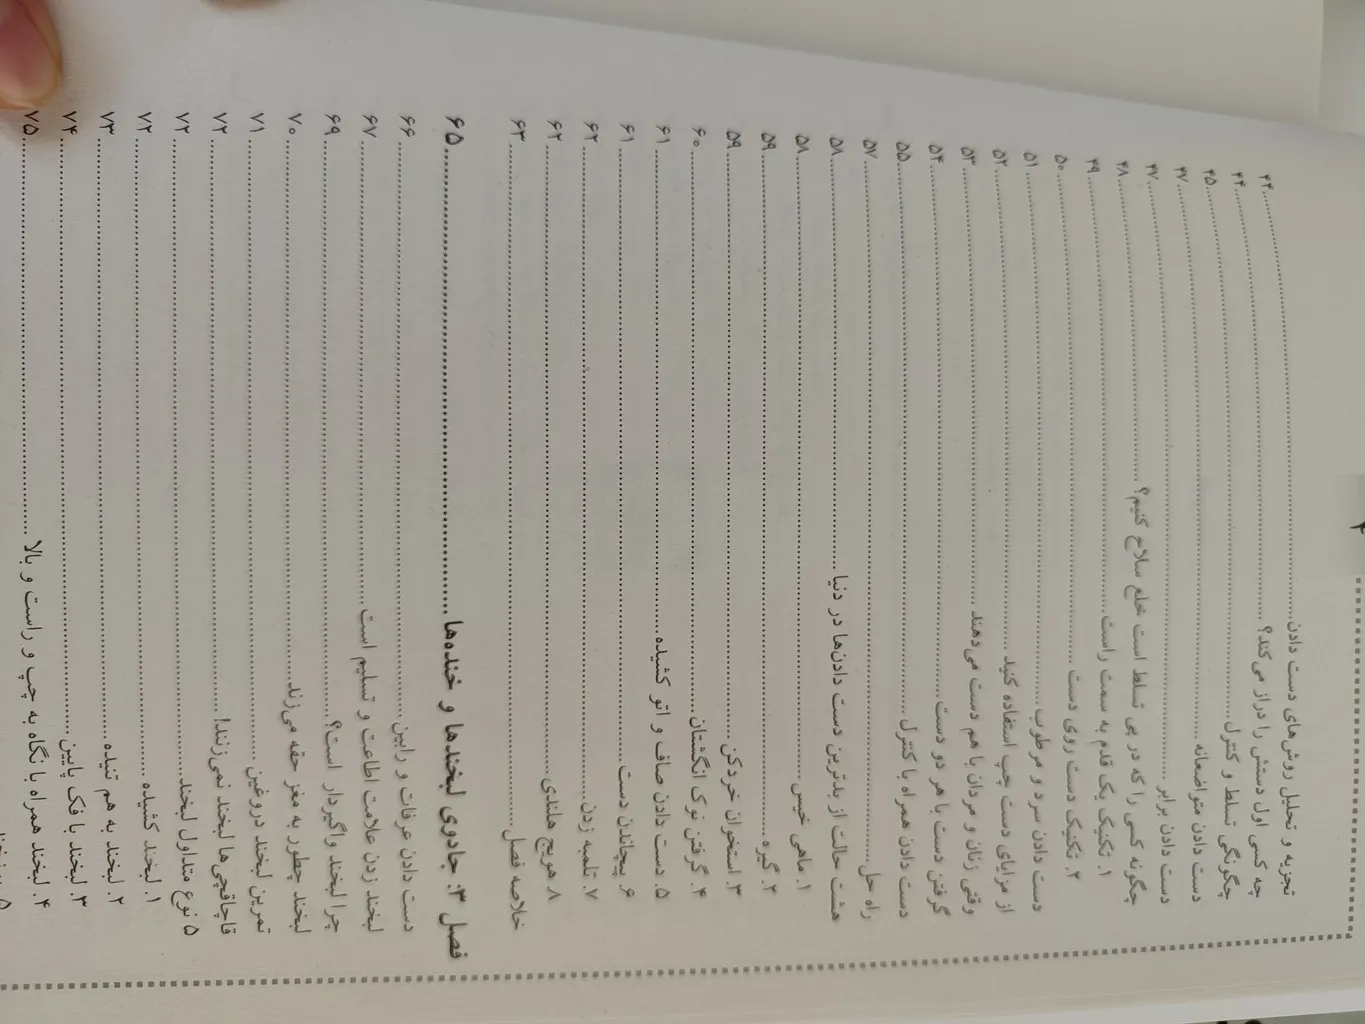 تجزیه و تحلیل روش‌های دست دادن ۴۴
چه کسی اول دستش را دراز می‌کند؟ ۴۴
چگونگی تسلط و کنترل ۴۵
دست دادن متواضعانه ۴۷
دست دادن برابر ۴۷
چگونه کسی را که در پی تسلط است خلع سلاح کنیم؟ ۴۸
۱. تکنیک یک قدم به سمت راست ۴۹
۲. تکنیک دست روی دست ۵۰
دست دادن سرد و مرطوب ۵۱
از مزایای دست چپ استفاده کنید ۵۲
وقتی زنان و مردان با هم دست می‌دهند ۵۳
گرفتن دست با هر دو دست ۵۴
دست دادن همراه با کنترل ۵۵
راه حل ۵۷
هشت حالت از بدترین دست دادن‌ها در دنیا ۵۸
۱. ماهی خیس ۵۸
۲. گیره ۵۹
۳. استخوان خردکن ۵۹
۴. گرفتن نوک انگشتان ۶۰
۵. دست دادن صاف و اتو کشیده ۶۱
۶. پیچاندن دست ۶۱
۷. تلمبه زدن ۶۲
۸. هویج هلندی ۶۲
خلاصه فصل ۶۳
فصل ۳: جادوی لبخندها و خنده‌ها ۶۵
دست دادن عرفات و رابین ۶۶
لبخند زدن علامت اطاعت و تسلیم است ۶۷
چرا لبخند واگیردار است؟ ۶۹
لبخند چطور به مغز حقه می‌زند ۷۰
تمرین لبخند دروغین ۷۱
قاچاقچی‌ها لبخند نمی‌زنند! ۷۲
۵ نوع متداول لبخند ۷۲
۱. لبخند کشیده ۷۲
۲. لبخند به هم تنیده ۷۳
۳. لبخند با فک پایین ۷۴
۴. لبخند همراه با نگاه به چپ و راست و بالا ۷۵